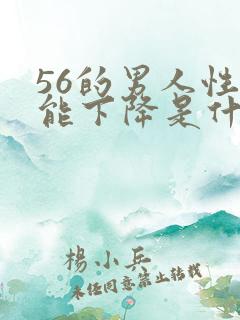 56的男人性
能下降是什
楊小兵
未经同意禁止转载